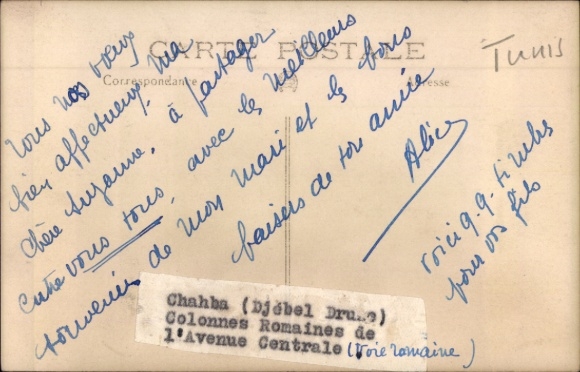 CARTE POSTALE
Correspondance
Adresse
Tunis
Tous nos vœux
bien affectueux, ma
chère Suzanne, à partager
entre vous tous, avec les meilleurs
souvenirs de mon mari et les bons
baisers de ton amie
Alice
voici q.q. timbres
pour vos fils
Chahba (Djébel Druze)
Colonnes Romaines de
l'Avenue Centrale (Voie romaine)